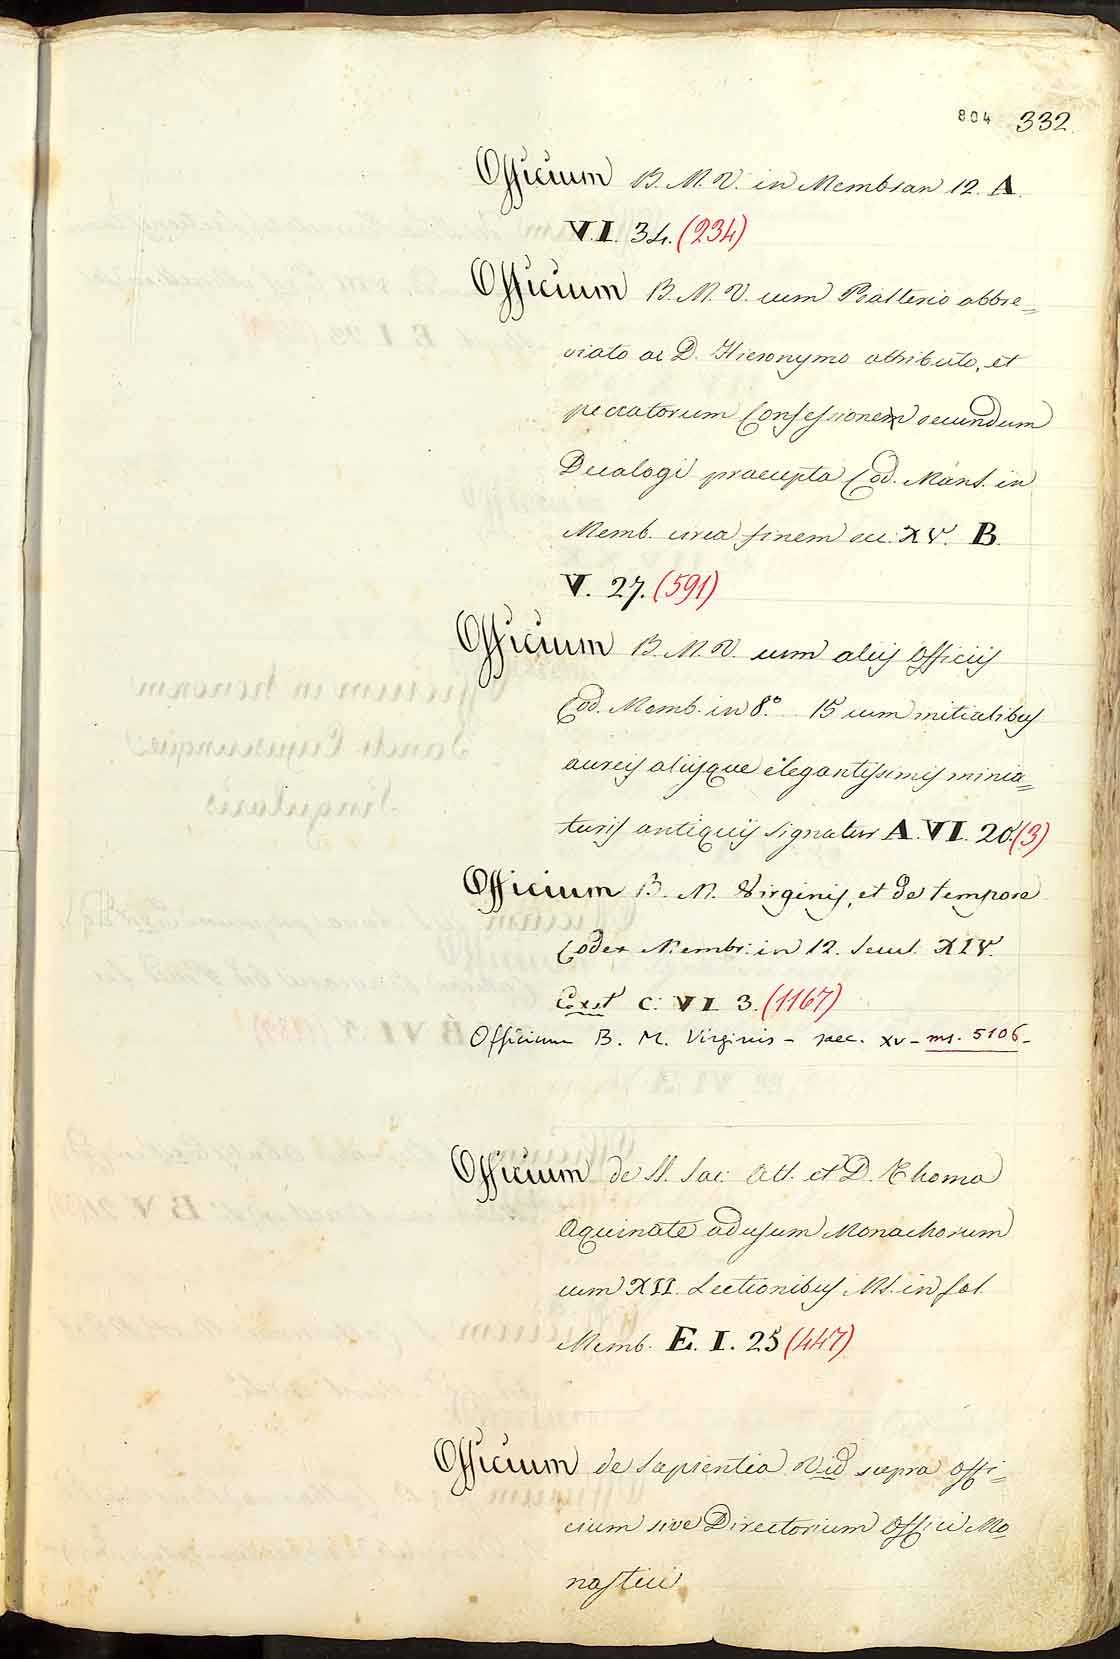 804 332
Officium B. M. V. in Membran 12. A.
V.I. 34. (234)
Officium B. M. V. cum Psalterio abbre=
viato ac D. Hieronymo attributo, et
peccatorum Confessionem secundum
Decalogi praecepta Cod. Mans. in
Memb. circa finem sec. XV. B.
V. 27. (591)
Officium B. M. V. cum aliis Officiis
Cod. Memb. in 8.º 15 cum initialibus
aureis aliisque elegantissimis minia=
turis antiquis signatur A. VI. 20. (3)
Officium B. M. Virginis, et de tempore
Codex Membr. in 12. Secul. XIV.
Exst C. VI. 3. (1167)
Officium B. M. Virginis – sec. XV – ms. 5106 –
Officium de SS. Sac. Alt. et D. Thoma
Aquinate ad usum Monachorum
cum XII. Lectionibus MS. in fol.
Memb. E. I. 25 (447)
Officium de Sapientia Vid supra Offi=
cium sive Directorium Offici Mo
nastici